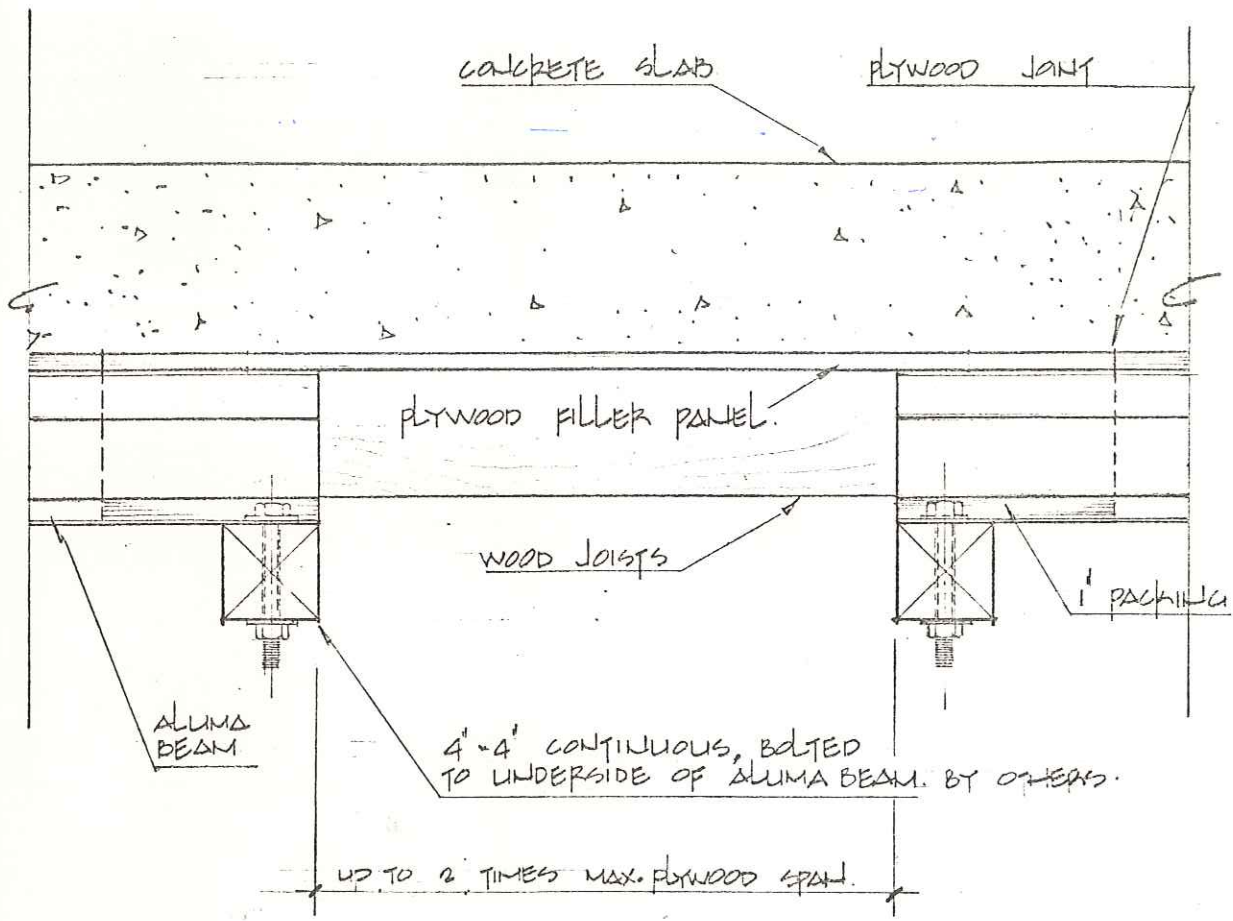 CONCRETE SLAB
PLYWOOD JOINT
PLYWOOD FILLER PANEL.
WOOD JOISTS
1" PACKING
ALUMA
BEAM
4"-4" CONTINUOUS, BOLTED
TO UNDERSIDE OF ALUMA BEAM. BY OTHERS.
UP TO 2 TIMES MAX. PLYWOOD SPAN.